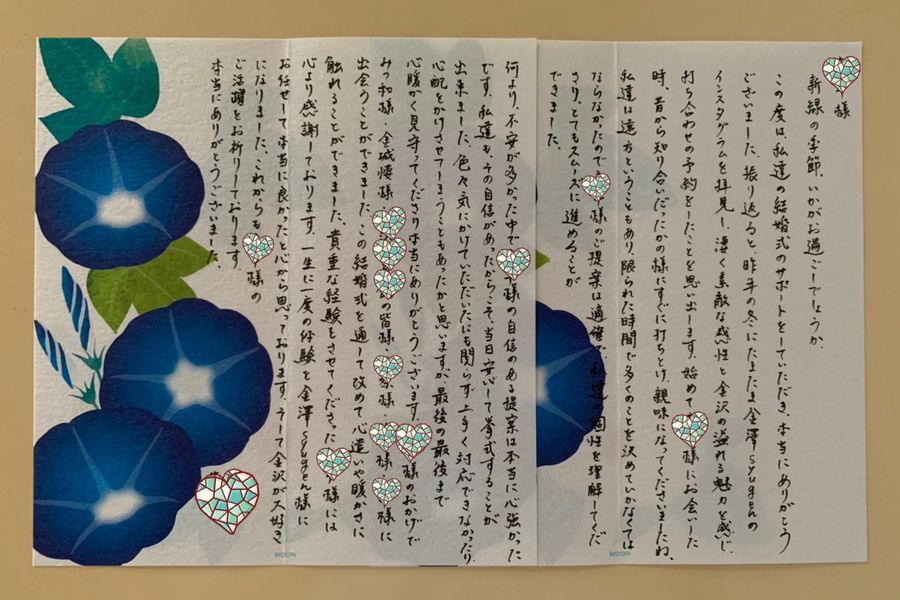 様
新緑の季節、いかがお過ごしでしょうか。
この度は、私達の結婚式のサポートをしていただき、本当にありがとう
ございました。振り返ると昨年の冬にたまたま金澤syugenの
インスタグラムを拝見し、凄く素敵な感性と金沢の溢れる魅力を感じ、
打ち合わせの予約をしたことを思い出します。始めて 様にお会いした
時、昔から知り合いだったかの様にすぐに打ちとけ、親味になってくださいましたね。
私達は遠方ということもあり、限られた時間で多くのことを決めていかなくては
ならなかったので 様のご提案は適確で、私達の個性を理解してくだ
さり、とてもスムーズに進めることが
できました。
何より、不安が多かった中で 様の自信のある提案は本当に心強かった
です。私達も、その自信があったからこそ、当日安心して挙式することが
出来ました。色々気にかけていただいたにも関らず、上手く対応できなかったり、
心配をかけさせてしまうこともあったかと思いますが、最後の最後まで
心暖かく見守ってくださり本当にありがとうございます。 様のおかげで
みつ和様、金城樓様 の皆様 様 様 様に
出会うことができました。この結婚式を通して改めて心遣いや暖かさに
触れることができました。貴重な経験をさせてくださった 様には
心より感謝しております。一生に一度の体験を金澤syugen様に
お任せして本当に良かったと心から思っております。そして金沢が大好き
になりました。これからも 様の
ご活躍をお祈りしております。
本当にありがとうございました。
MIDORI
MIDORI